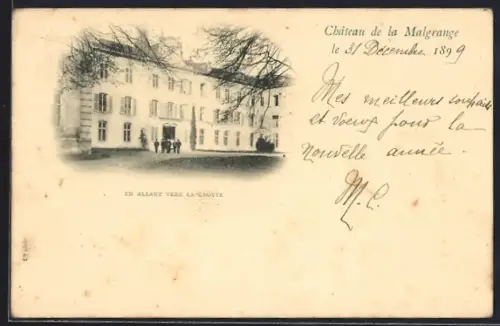 Château de la Malgrange
le 31 Décembre 1899
Mes meilleurs souhaits
et vœux pour la
nouvelle année.
M. C.
EN ALLANT VERS LA GROTTE